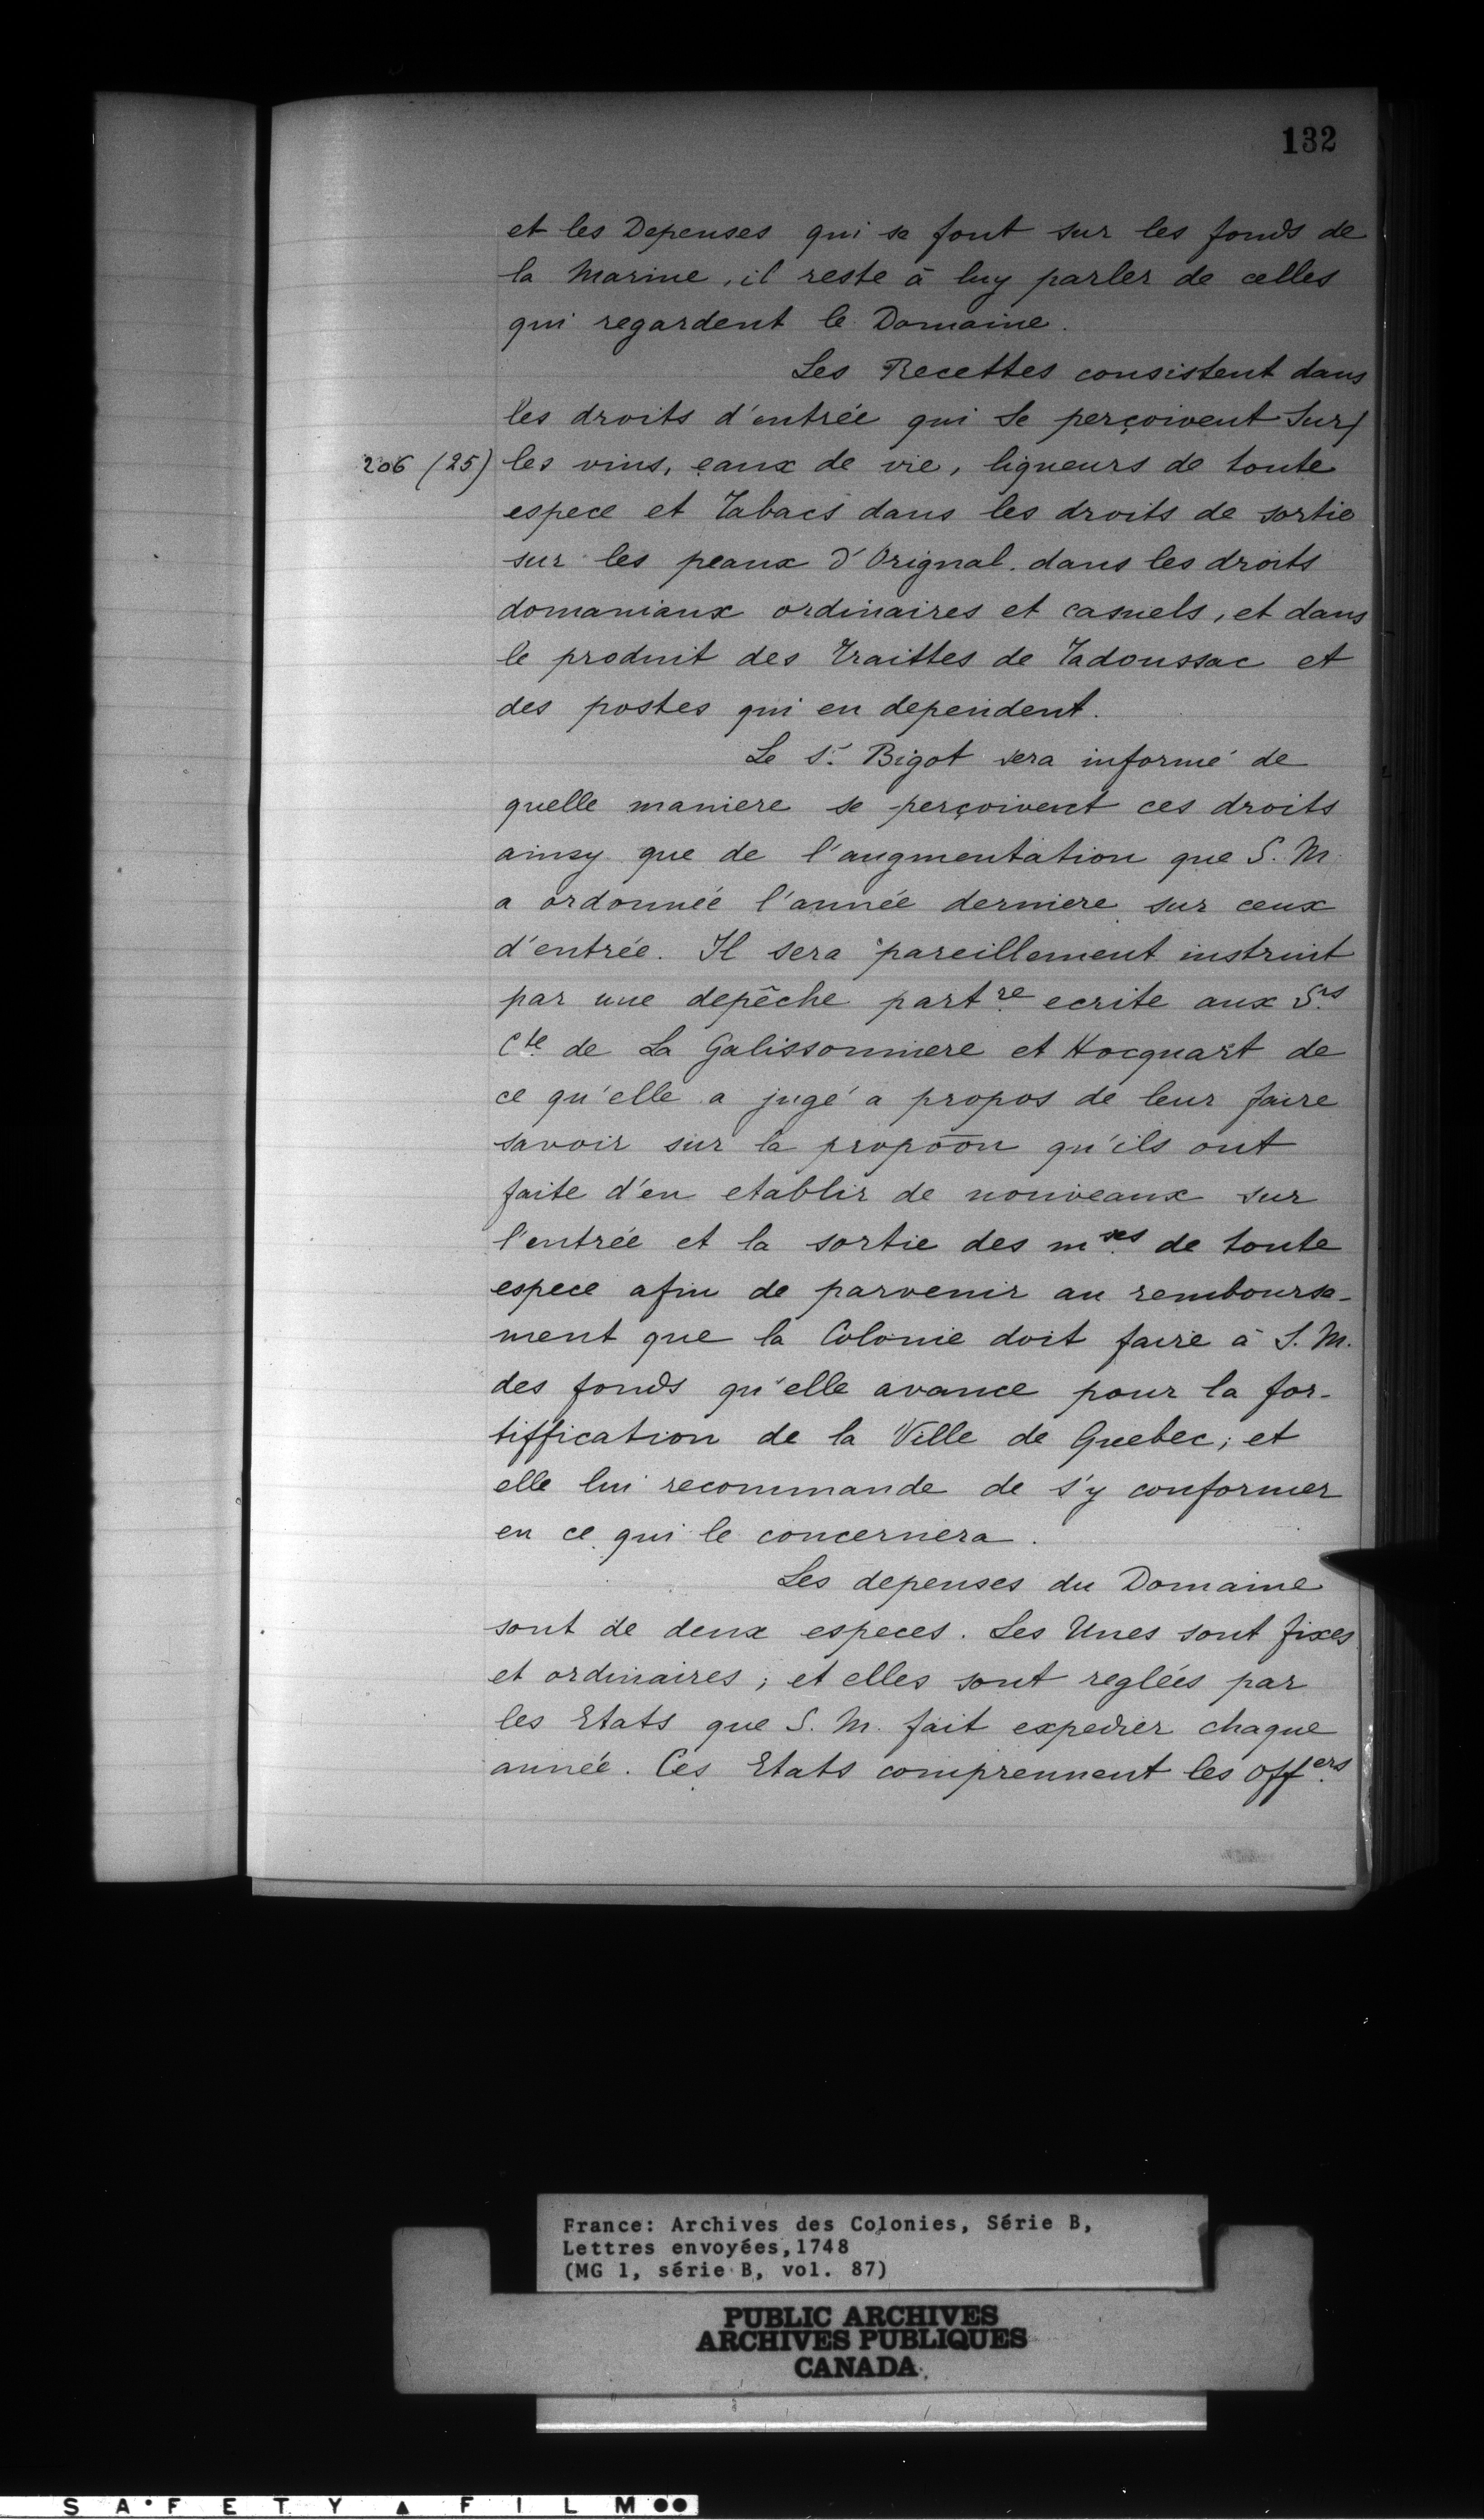 132
et les Depenses qui se font sur les fonds de
la Marine, il reste à luy parler de celles
qui regardent le Domaine.
Les Recettes consistent dans
les droits d'entrée qui se perçoivent sur/
206 (25) les vins, eaux de vie, liqueurs de toute
espece et Tabacs dans les droits de sortie
sur les peaux d'Orignal. dans les droits
domaniaux ordinaires et casuels, et dans
le produit des Traittes de Tadoussac et
des postes qui en dependent.
Le Sr. Bigot sera informé de
quelle maniere se perçoivent ces droits
ainsy que de l'augmentation que S. M.
a ordonnée l'année derniere sur ceux
d'entrée. Il sera pareillement instruit
par une depêche partre. ecrite aux Srs.
Cte. de La Galissonniere et Hocquart de
ce qu'elle a jugé a propos de leur faire
savoir sur la propōōn qu'ils ont
faite d'en etablir de nouveaux sur
l'entrée et la sortie des mses. de toute
espece afin de parvenir au rembourse-
ment que la Colonie doit faire à S. M.
des fonds qu'elle avance pour la for-
tiffication de la Ville de Quebec; et
elle lui recommande de s'y conformer
en ce qui le concernera.
Les depenses du Domaine
sont de deux especes. Les Unes sont fixes
et ordinaires; et elles sont reglées par
les Etats que S. M. fait expedier chaque
année. Ces Etats comprennent les offers.
France: Archives des Colonies, Série B,
Lettres envoyées,1748
(MG 1, série B, vol. 87)
PUBLIC ARCHIVES
ARCHIVES PUBLIQUES
CANADA
SAFETY ▲ FILM ●●